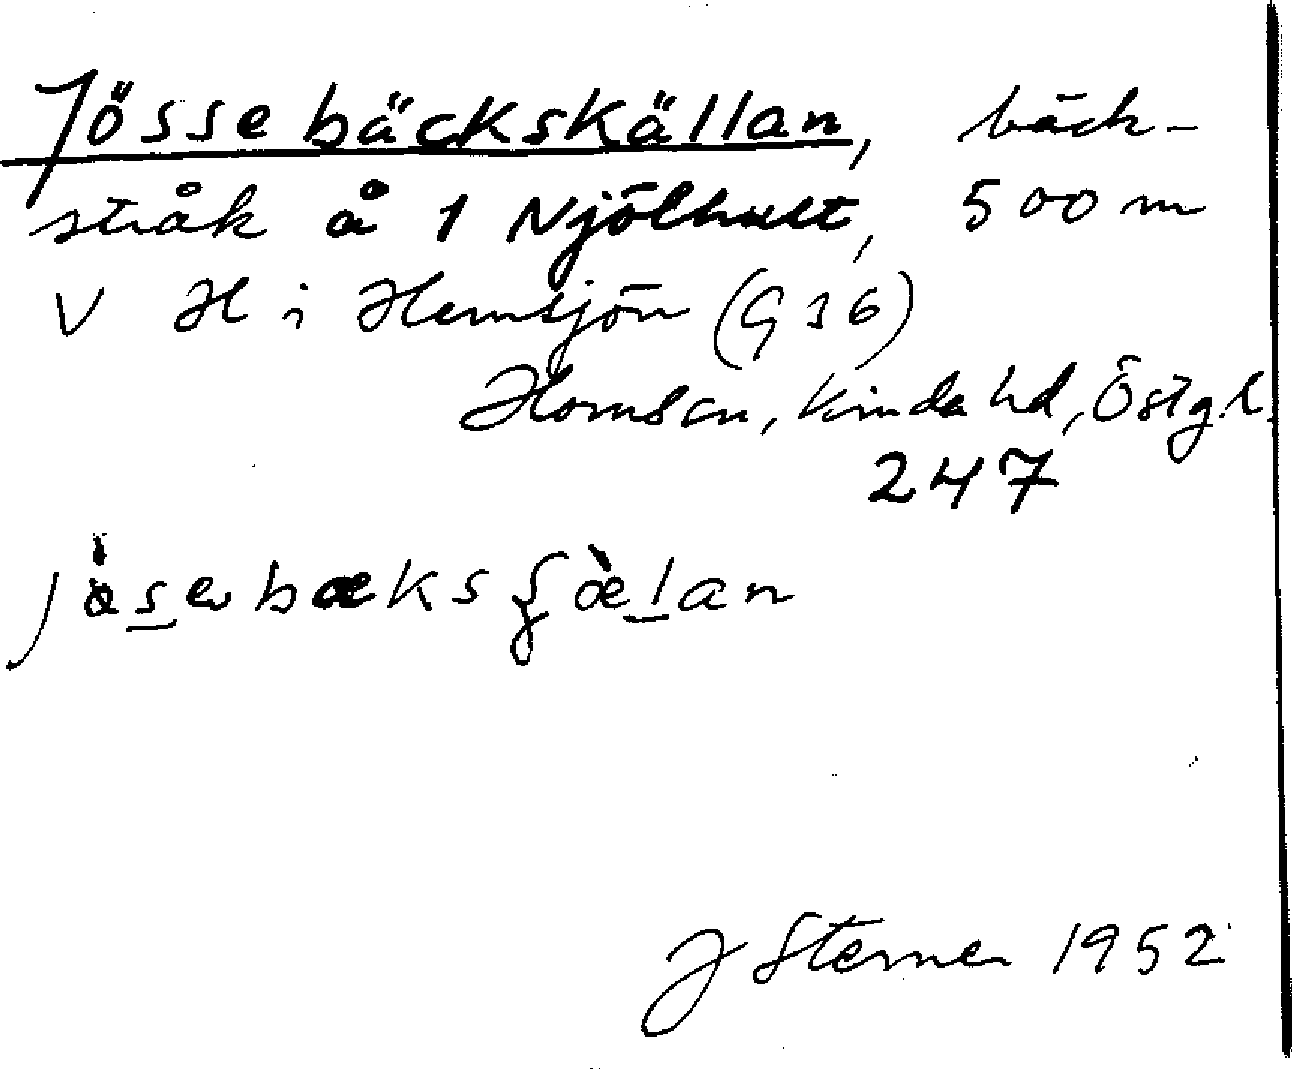 Jössebäckskällan, bäck-
stråk å 1 Njölhult, 500 m
V H i Hemsjön (G 36)
Horns sn, Kinda hd, Östgl.
247
J Sterner 1952